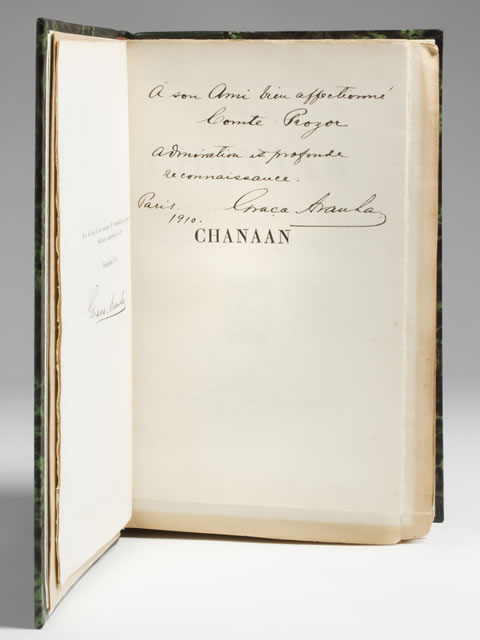 À son Ami bien affectionné
Comte Prozor
admiration et profonde
reconnaissance.
Paris.
1910.
Graça Aranha
CHANAAN
Graça Aranha